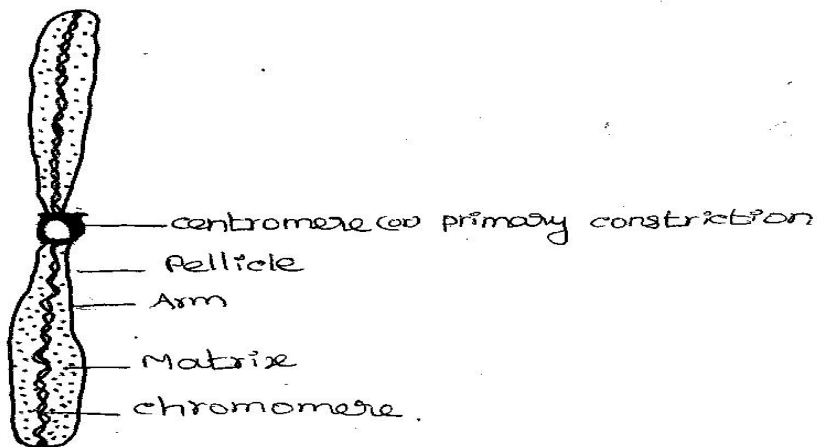 centromere (or) primary constriction
Pellicle
Arm
Matrix
chromomere.